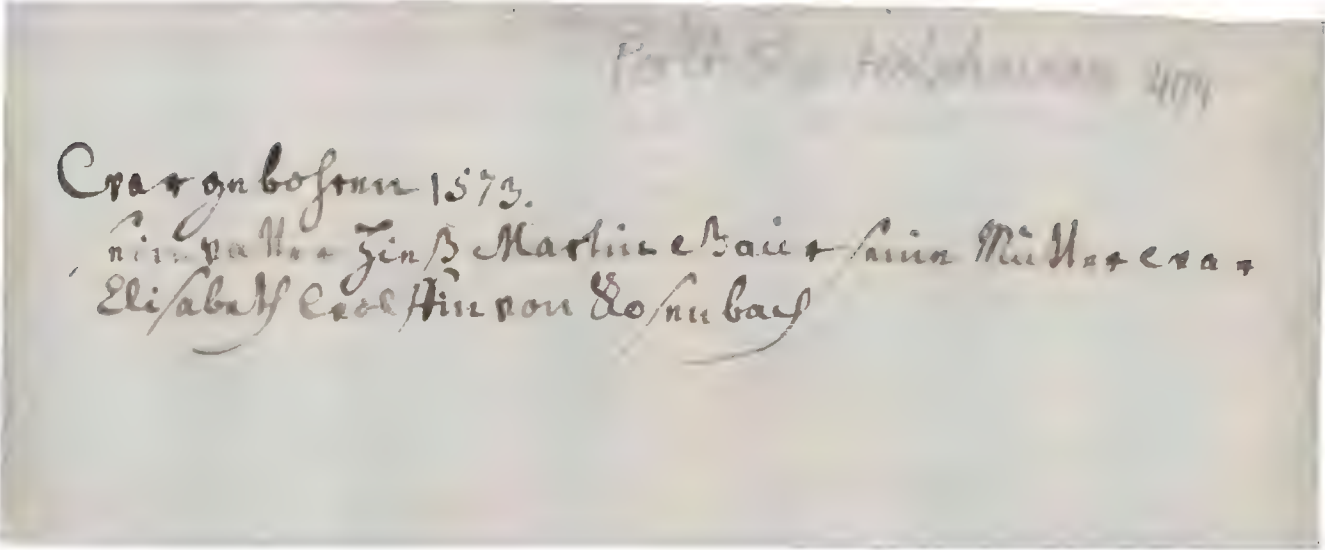 War gebohren 1573.
sein vatter hieß Martin Baier seine Mütter war
Elisabeth von Rosenbach